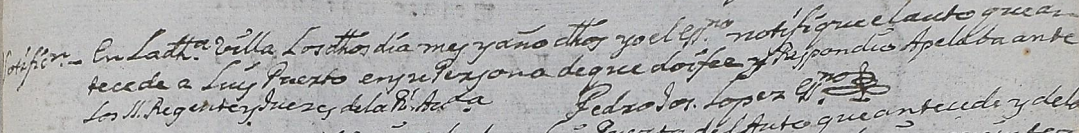 Notificn - En La dha. Villa Los dhos dia mes y año dhos yo el Essno notifique el auto que an-
tecede a Luis Puerto en su Persona de que doi fee y Respondio Apelaba ante
los SS. Regente y Jueces de la Rl. Auda
Pedro Jos. Lopez Essno
que antecede y de lo